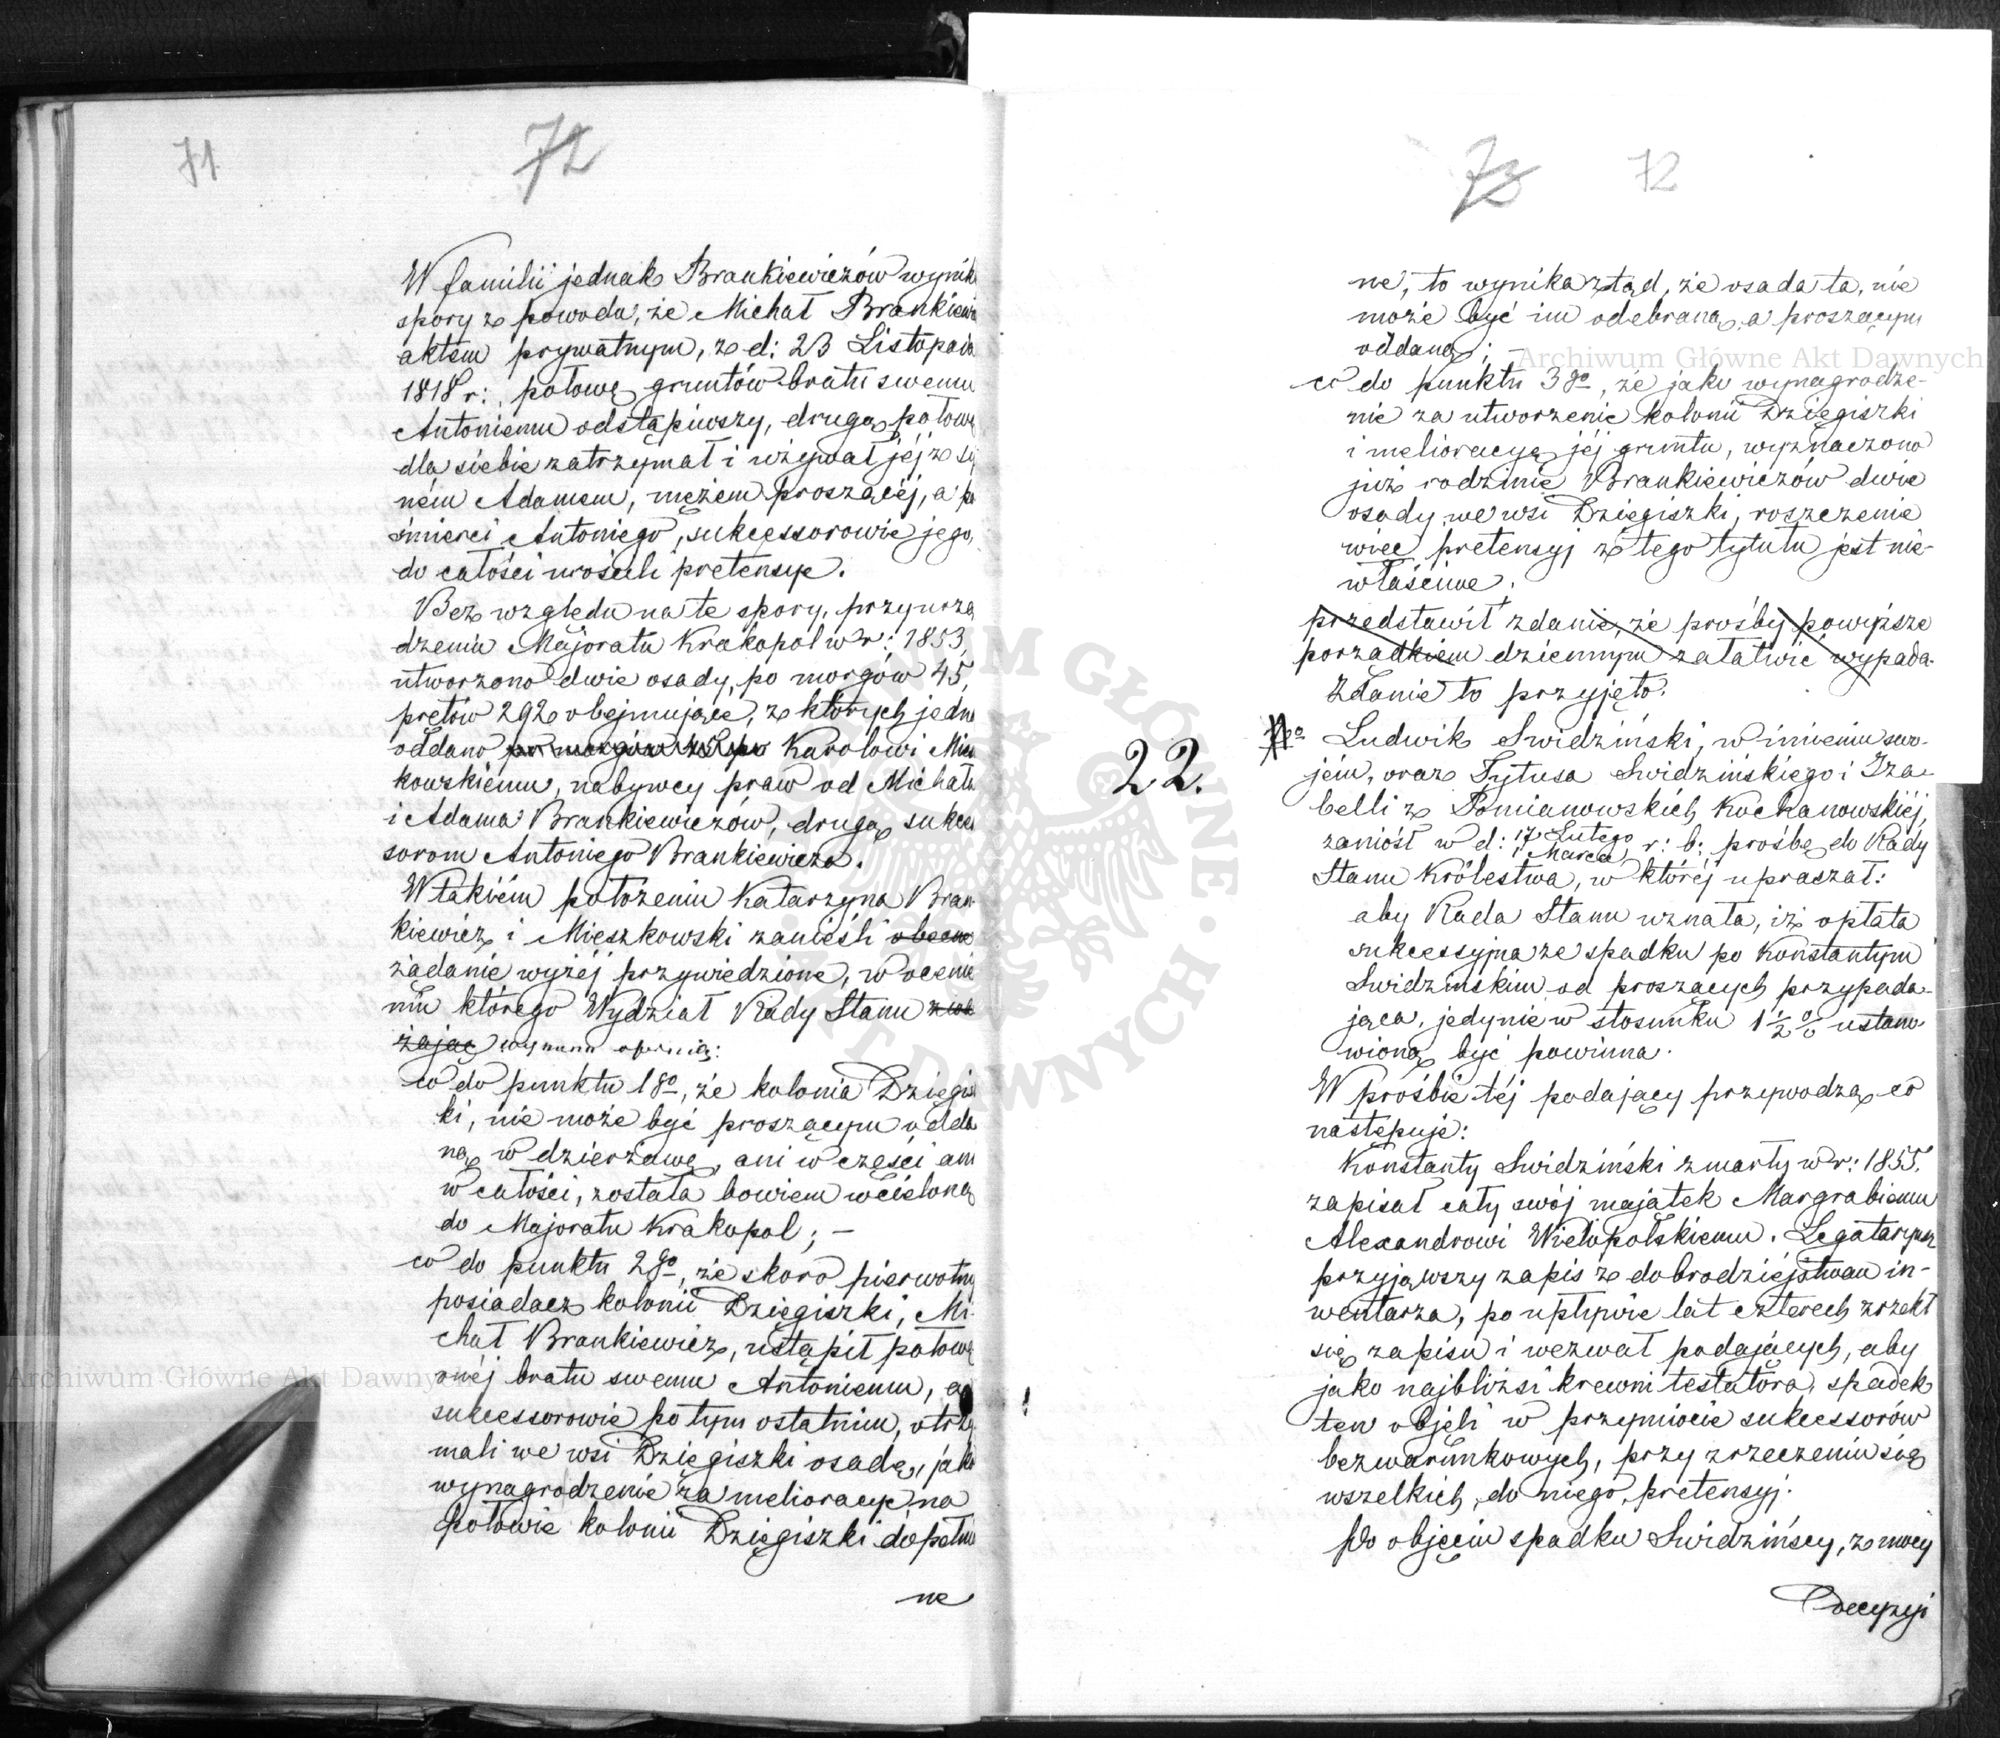 71
72
W familii jednak Brankiewiczów wynik
spory z powodu, że Michał Brankiewi
aktem prywatnym, z d: 23 Listopada
1818 r:, połowę gruntów bratu swemu
Antoniemu odstąpiwszy, drugą połowę
dla siebie zatrzymał i używał jéj z sy
ném Adamem, mężem proszącéj, a po
śmierci Antoniego, sukcessorowie jego,
do całości rościli pretensye.
Bez względu na te spory, przy urzą
dzeniu Majoratu Krakopol w r: 1853,
utworzono dwie osady, po morgów 45,
prętów 292 obejmujące, z których jedną
oddano po morgów 45 pr Karolowi Miesz
kowskiemu, nabywcy praw od Michała
i Adama Brankiewiczów, drugą sukces
sorom Antoniego Brankiewicza.
W takiém położeniu Katarzyna Bran-
kiewicz i Mieszkowski zanieśli obecne
żądanie wyżéj przywiedzione, w ocenie
niu którego Wydział Rady Stanu zwa
żając wynurza opinię:
co do punktu 1go, że kolonia Dzięgisz
ki, nie może być proszącym odda
ną w dzierżawę, ani w części ani
w całości, została bowiem wcieloną
do Majoratu Krakopol; —
co do punktu 2go, że skoro pierwotny
posiadacz kolonii Dzięgiszki, Mi-
chał Brankiewicz, ustąpił połowę
onéj bratu swemu Antoniemu, a
sukcessorowie po tym ostatnim, otrzy
mali we wsi Dzięgiszki osadę, jako
wynagrodzenie za melioracye na
połowie kolonii Dzięgiszki dopełnio
ne
73
72
ne, to wynika ztąd, że osada ta, nie
może być im odebraną, a proszącym
oddaną; —
co do punktu 3go, że jako wynagrodze-
nie za utworzenie kolonii Dzięgiszki
i melioracyą jéj gruntu, wyznaczono
już rodzinie Brankiewiczów dwie
osady we wsi Dzięgiszki, roszczenie
więc pretensyj z tego tytułu jest nie-
właściwe.
przedstawił zdanie, że prośby powyższe
porządkiem dziennym załatwić wypada.
Zdanie to przyjęto.
22.
Ludwik Swidziński, w imieniu swo-
jém, oraz Tytusa Swidzińskiego i Iza-
belli z Pomianowskich Kochanowskiéj,
zaniósł w d: 17 Lutego
1 Marca r: b: prośbę do Rady
Stanu Królestwa, w któréj upraszał:
aby Rada Stanu uznała, iż opłata
sukcessyjna ze spadku po Konstantym
Swidzinskim od proszących przypada-
jąca, jedynie w stosunku 1 ½ % ustano-
wioną być powinna.
W prośbie téj podający przywodzą co
następuje:
Konstanty Swidziński zmarły w r: 1855,
zapisał cały swój majątek Margrabiemu
Alexandrowi Wielopolskiemu. Legataryusz
przyjąwszy zapis z dobrodziejstwem in-
wentarza, po upływie lat czterech zrzekł
się zapisu i wezwał podających, aby
jako najbliżsi krewni testatora, spadek
ten objęli w przymiocie sukcessorów
bezwarunkowych, przy zrzeczeniu się
wszelkich do niego pretensyj.
Po objęciu spadku Swidzińscy, z mocy
Decyzyi
Archiwum Główne Akt Dawnych
Archiwum Główne Akt Dawnych
ARCHIWUM GŁÓWNE AKT DAWNYCH